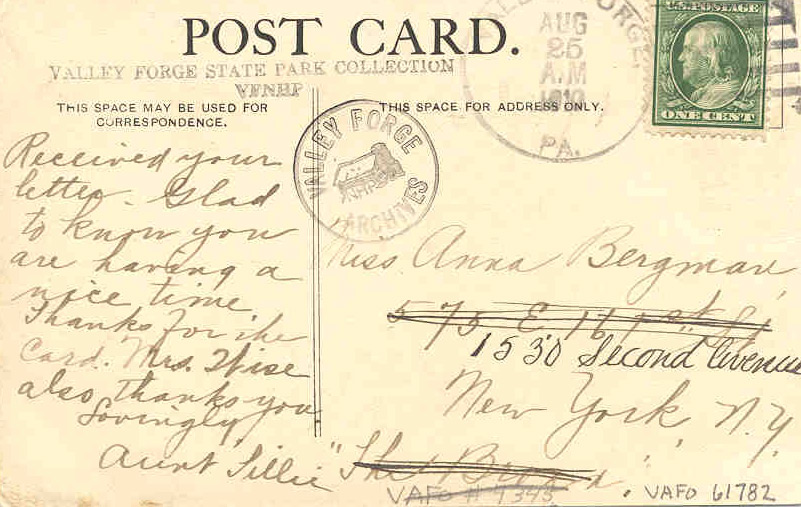 POST CARD.
VALLEY FORGE STATE PARK COLLECTION
VFNHP
THIS SPACE MAY BE USED FOR
CORRESPONDENCE.
THIS SPACE FOR ADDRESS ONLY.
VALLEY FORGE
VNHP
ARCHIVES
VALLEY FORGE,
AUG
25
A.M
1910
PA.
U.S. POSTAGE
ONE CENT
Received your
letter. Glad
to know you
are having a
nice time.
Thanks for the
Card. Mrs. Wise
also thanks you
Lovingly
Aunt Lillie
Miss Anna Bergman,
575 E 161st St
1530 Second Avenue
New York, N.Y.
"The Bronx"
VAFO # 4343
VAFO 61782